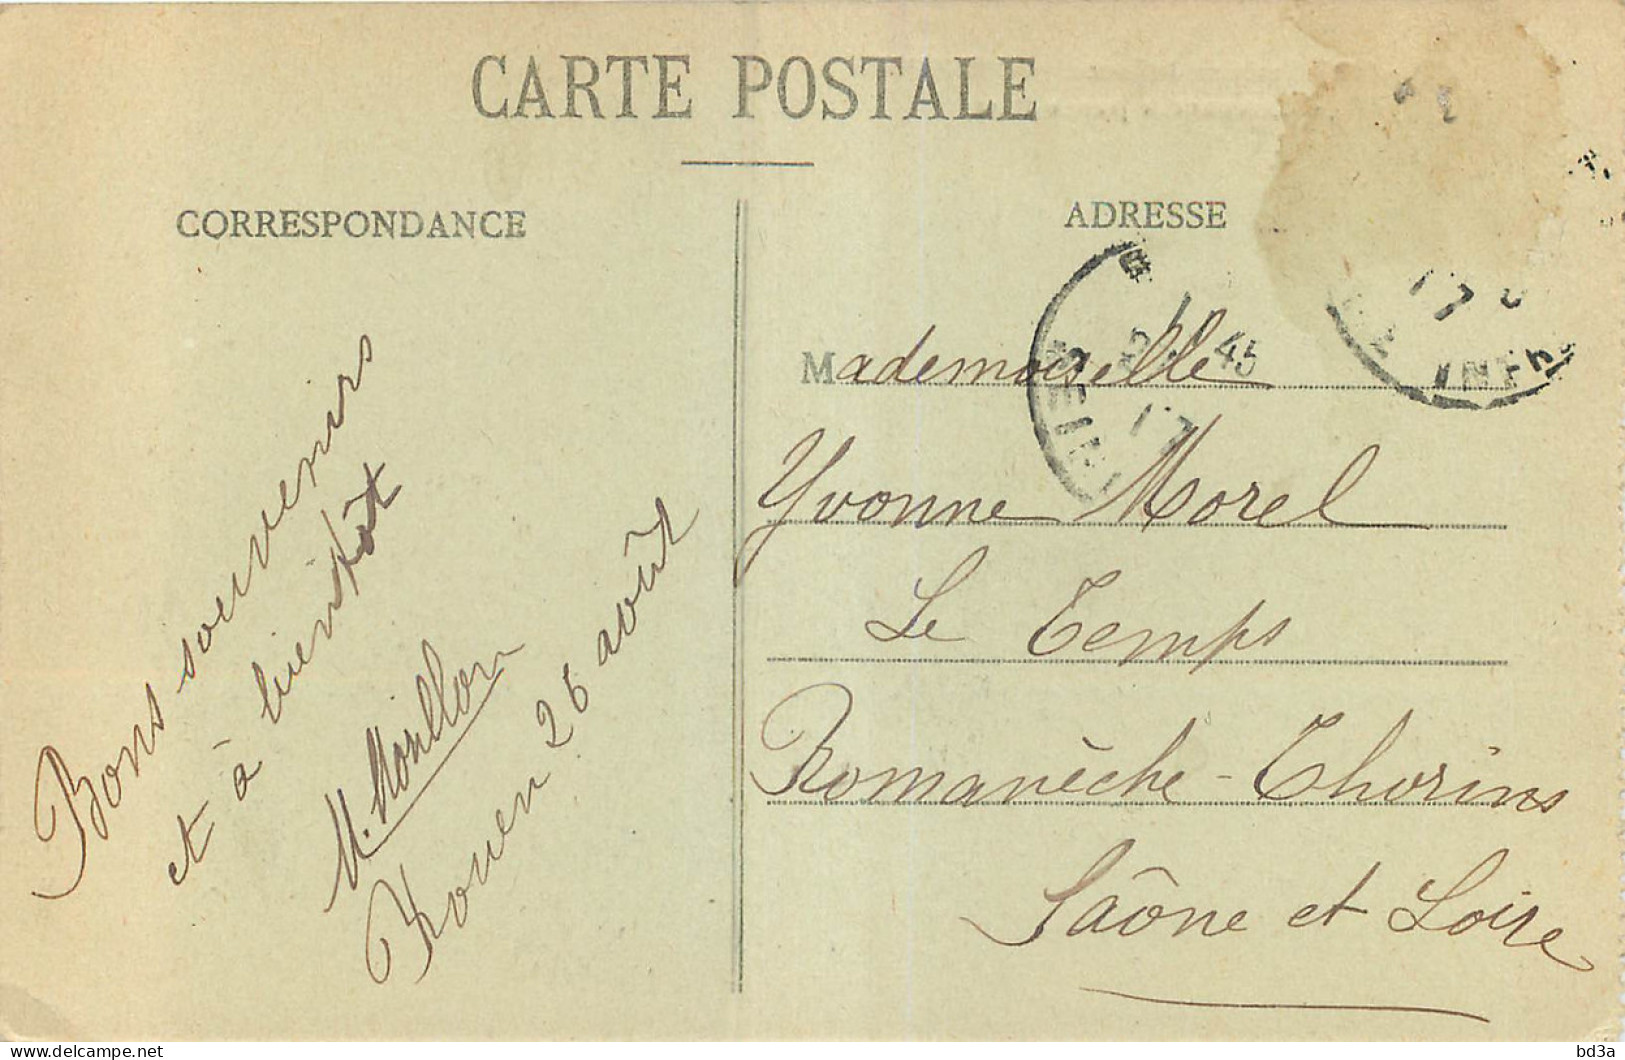 CARTE POSTALE
CORRESPONDANCE
ADRESSE
Bons souvenirs
et à bientôt
M. Monillon
Rouen 26 août
Mademoiselle
Yvonne Morel
Le Temps
Romanèche-Thorins
Saône et Loire
45
17
17
bd3a